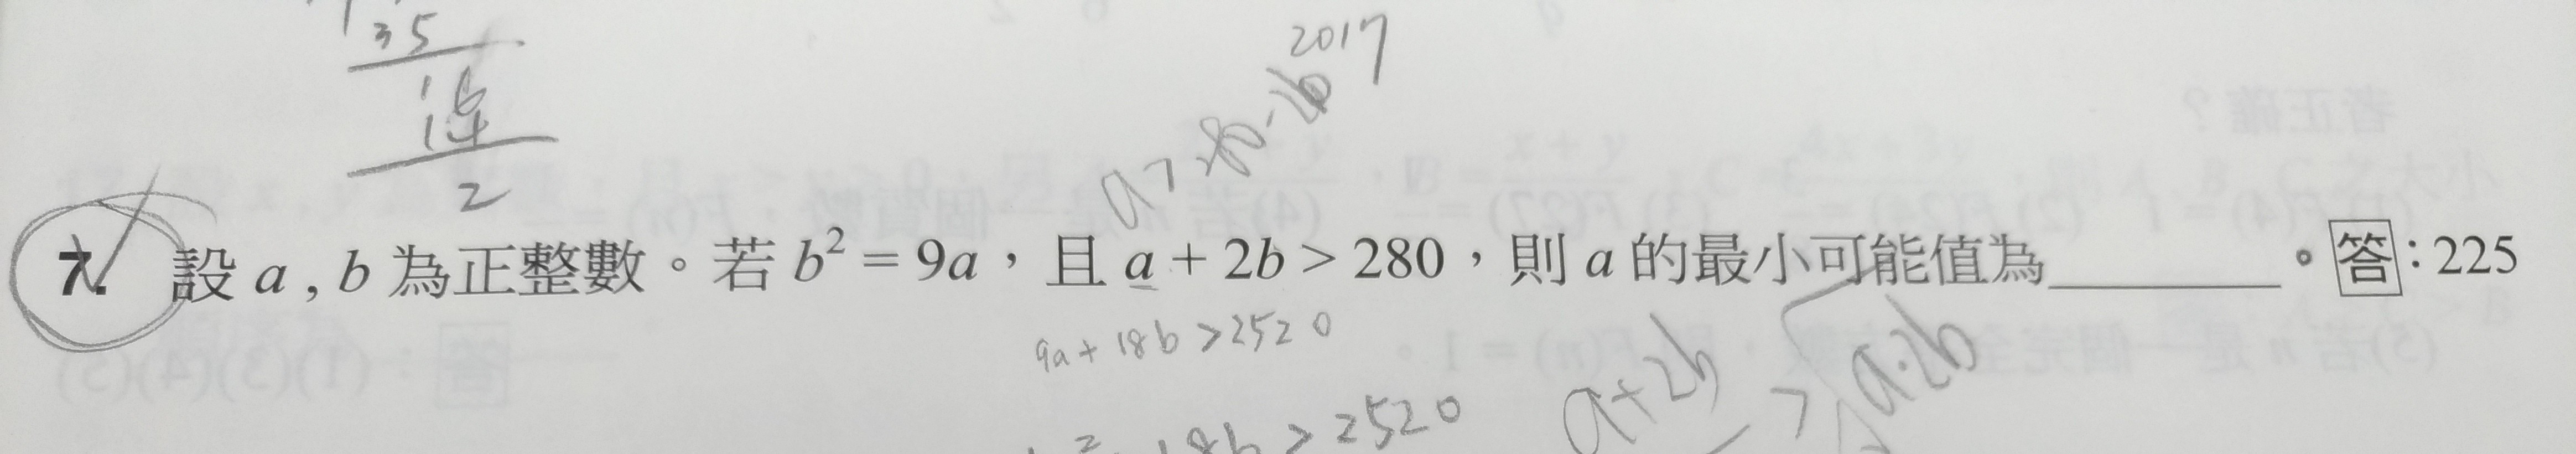 35
16
14
2
2017
7. 設 a , b 為正整數。若 b² = 9a，且 a + 2b > 280，則 a 的最小可能值為________。答：225
9a + 18b > 2520
18b > 2520
a+2b > √a·2b